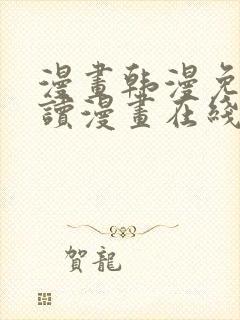 漫畫韩漫免
讀漫畫在綫
賀龍